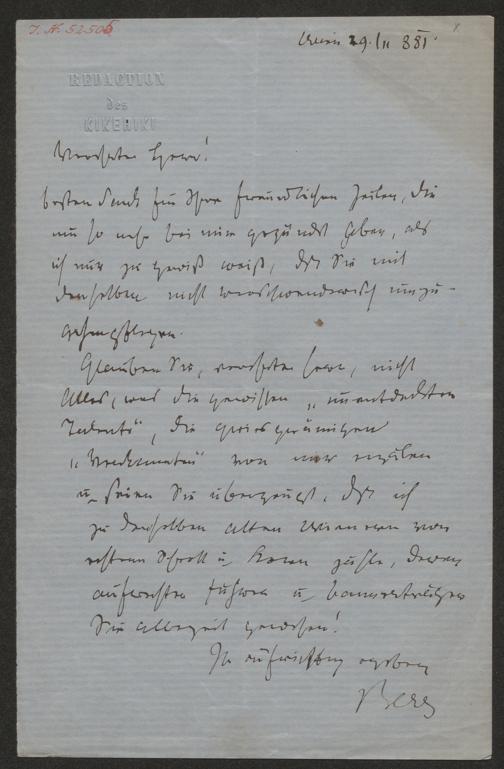 I. N. 52.506
Wien 29./II 881.
REDACTION
des
KIKERIKI
Verehrter Herr!
besten Dank für Ihre freundlichen Zeilen, die
um so mehr bei mir gezündet haben, als
ich nur zu gewiß weiß, daß Sie mit
denselben nicht verschwenderisch umzu-
gehen pflegen.
Glauben Sie, verehrter Herr, nicht
Alles, was die gewissen „unentdeckten
Talente“, die griesgrämigen
von mir erzälen
u. seien Sie überzeugt, daß ich
zu denselben alten Wienern von
echtem Schrott u. Korn zähle, deren
aufrechter Führer u.
Sie allezeit gewesen!
Ihr aufrichtig ergebener
Berg